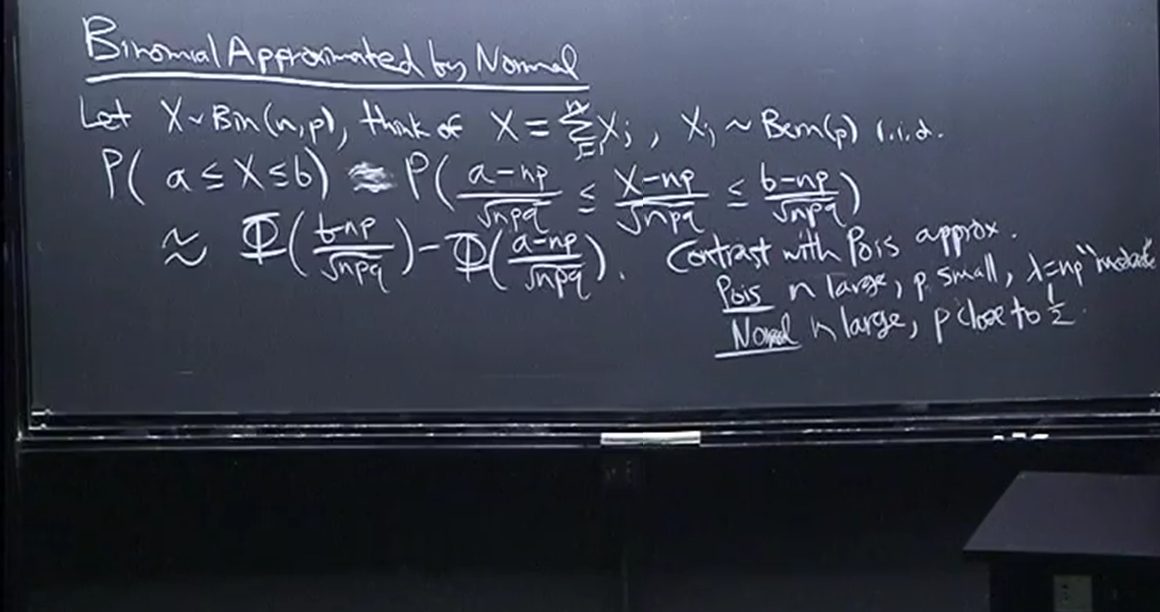 Binomial Approximated by Normal
Let X ~ Bin(n,p), think of X = Σ_{j=1}^n X_j , X_j ~ Bern(p) i.i.d.
P( a ≤ X ≤ b) = P( (a-np)/√npq ≤ (X-np)/√npq ≤ (b-np)/√npq )
≈ Φ( (b-np)/√npq ) - Φ( (a-np)/√npq ).
Contrast with Pois approx.
Pois n large, p small, λ=np "moderate"
Normal n large, p close to 1/2.